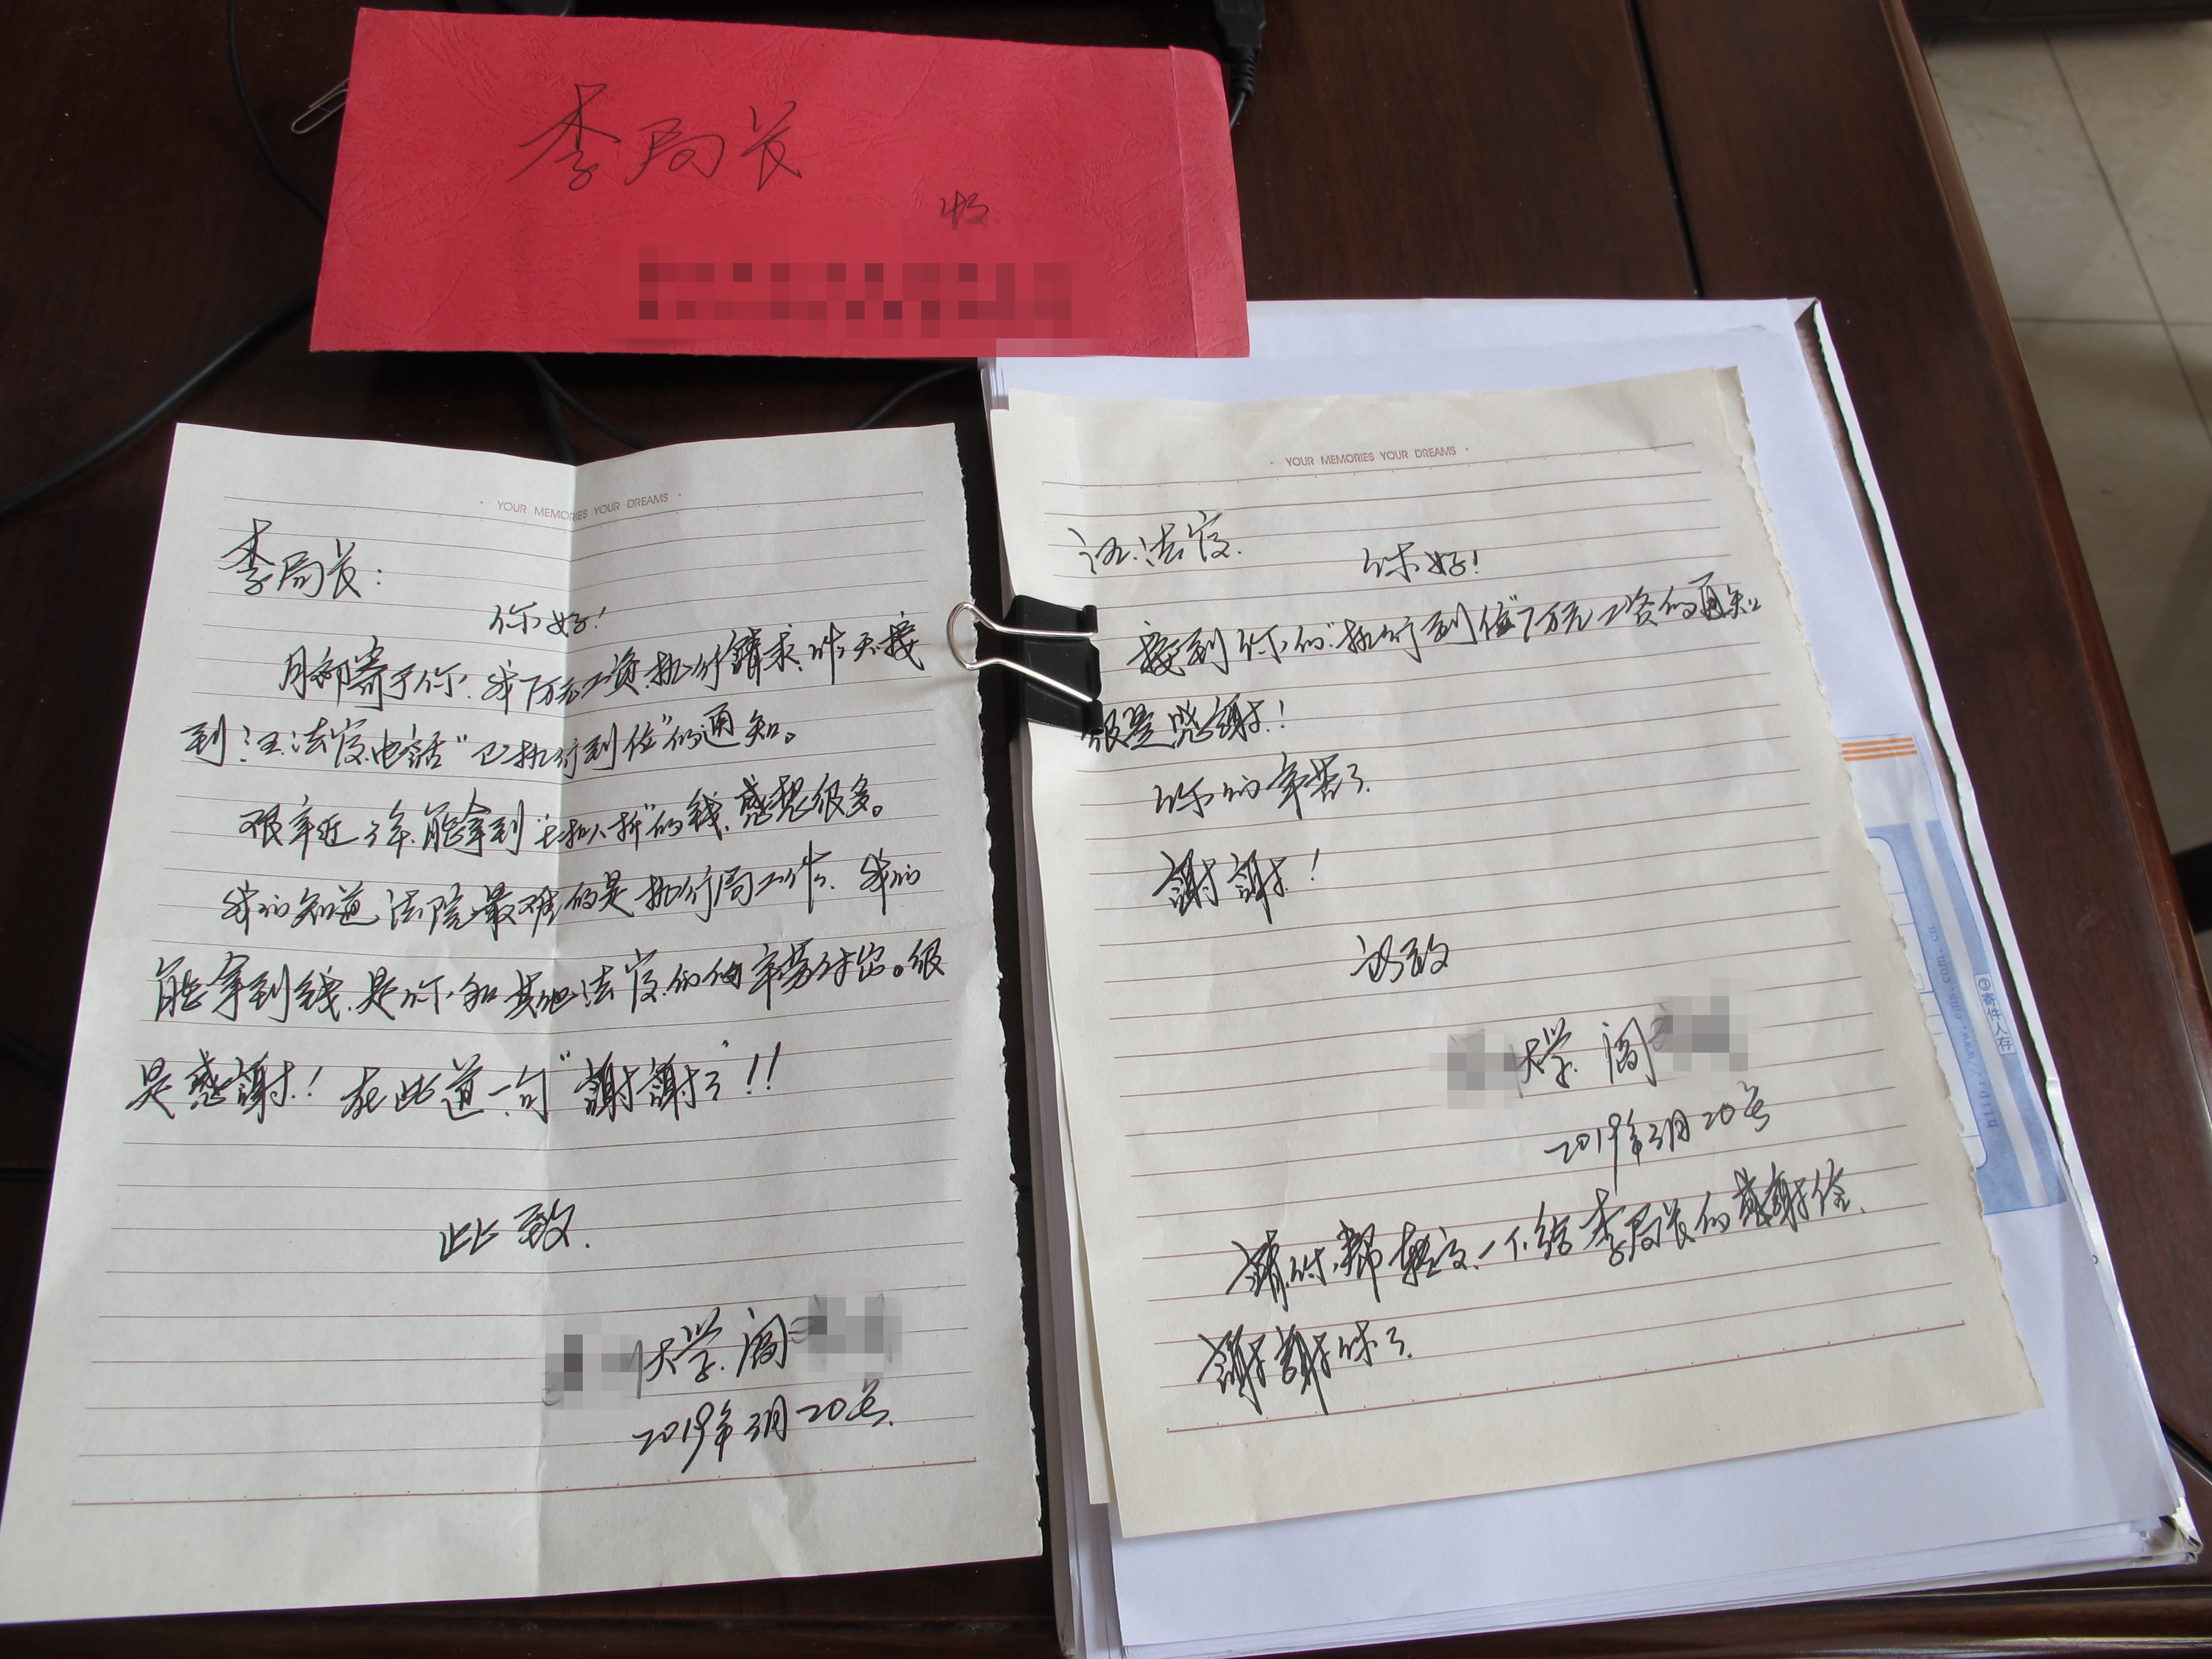 李局长
收
YOUR MEMORIES YOUR DREAMS
李局长:
你好!
月初寄于你.我7万元工资执行請求.昨天接
到汪法官电话"已执行到位"的通知。
艰辛近3年.能拿到"七扣八折"的錢.感想很多。
我们知道法院最难的是执行局工作.我们
能拿到钱.是你和其他法官们的辛劳付出。很
是感謝!在此道一句"謝謝了"!!
此致.
大学.阎
2019年3月20号.
YOUR MEMORIES YOUR DREAMS
汪法官.
你好!
接到你的"执行到位"7万元工资的通知
很是感謝!
你们辛苦了.
謝謝!
此致
大学 阎
2019年3月20号
請你帮轉交一下.给李局长的感謝信.
謝謝你了.
③寄件人存
http://www.ems.com.cn